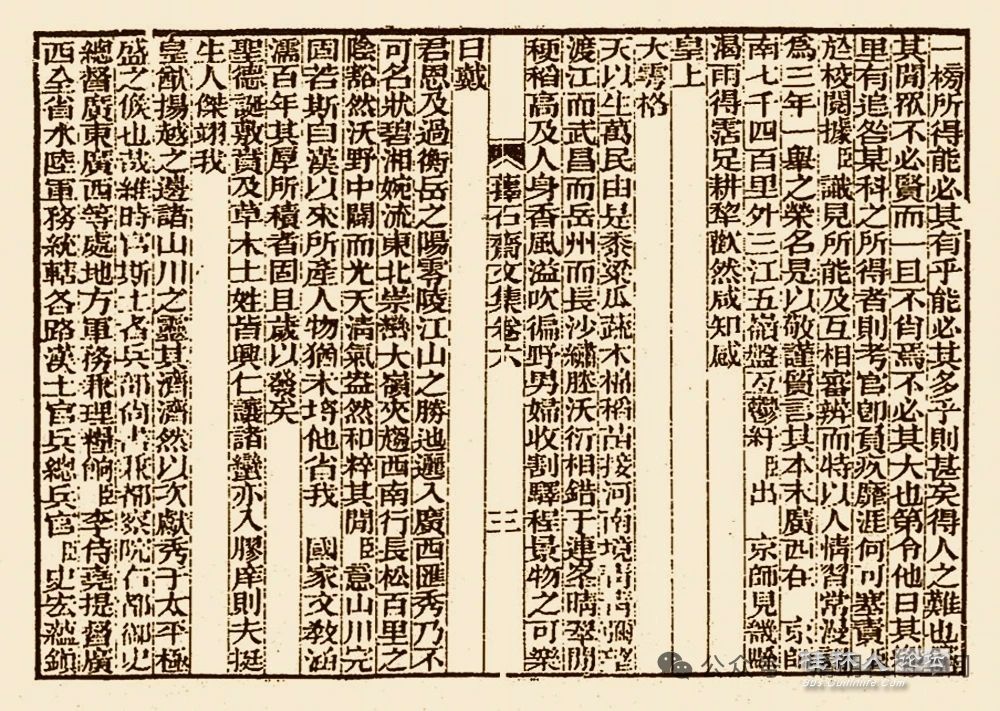 一榜所得能必其有乎能必其多乎則甚矣得人之難也
其閒眾不必賢而一且不肖焉不必其大也第令他日其
里有追咎某科之所得者則考官卽負疚靡涯何可塞責
於校閱據臣識見所能及互相審辨而特以人情習常漫
為三年一舉之榮名見以敬謹質言其本末廣西在 京師
南七千四百里外三江五嶺盤互鬱紆臣出 京師見畿
渴雨得霑足耕犂歡然咸知感
皇上
大雩格
天以生萬民由是黍粱瓜蔬木棉稻苗接河南境
渡江而武昌而岳州而長沙繡塍沃衍相錯于連峯晴翠閒
稉稻高及人身香風溢吹徧野男婦收割驛程景物之可樂
蘀石齋文集卷六
三
曰戴
君恩及過衡岳之陽零陵江山之勝迤邐入廣西匯秀乃不
可名狀碧湘婉流東北崇巒大嶺夾趨西南行長松百里之
陰豁然沃野中闢而光天淸氣盎然和粹其閒臣意山川完
固若斯自漢以來所產人物猶未埒他省我 國家文敎涵
濡百年其厚所積者固且歲以發矣
聖德誕敷賁及草木士姓皆興仁讓諸蠻亦入膠庠則夫挺
生人傑翊我
皇猷揚越之邊諸山川之靈其濟濟然以次獻秀于太平極
盛之候也哉維時官斯土者兵部尙書兼都察院右都御史
總督廣東廣西等處地方軍務兼理糧餉臣李侍堯提督廣
西全省水陸軍務統轄各路漢土官兵總兵官臣
公众号
桂林人论坛
bbs.Guilinlife.com